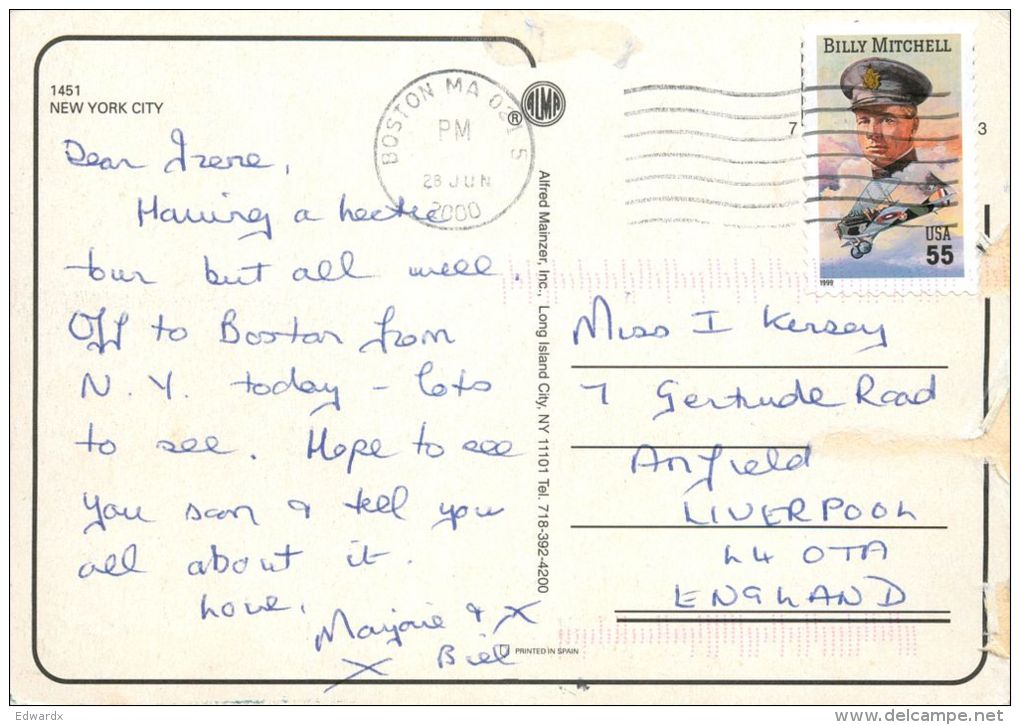 1451
NEW YORK CITY
Dear Irene,
Having a hectic
tour but all well.
Off to Boston from
N.Y. today - lots
to see. Hope to see
you soon & tell you
all about it.
Love,
Marjorie & X
X Bill
BOSTON MA 021
PM
28 JUN
2000
5
ALMA
®
Alfred Mainzer, Inc., Long Island City, NY 11101 Tel. 718-392-4200
PRINTED IN SPAIN
BILLY MITCHELL
USA
55
1999
7
3
Miss I Kersey
7 Gertrude Road
Anfield
LIVERPOOL
L4 0TA
ENGLAND
Edwardx
www.delcampe.net